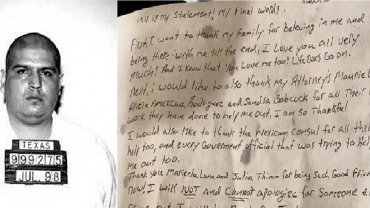 TEXAS
999275
JUL. 98
This is my statement! My final words.
First I want to thank my Family for beleving in me and
being there with me till the end; I Love you all very
much! And I know that you Love me too! Life Goes on.
Next, i would like to also thank my Attorney's Maurie
and Sandra Babcock for all their
work they have done to help me out. I am so thankful
I would also like to thank the mexican Consul for all the
help too, and every Goverment official that was trying to help
me out too.
Thank you Maricela Luna and Julia Thimm for being such Good Friends
Now! I will NOT and Cannot apologise for someone e